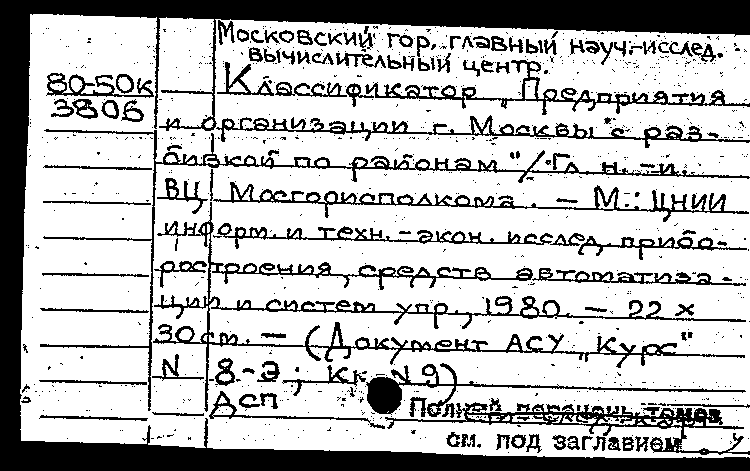 Московский гор. главный науч.-исслед.
вычислительный центр.
80-50к
3806
Классификатор „Предприятия
и организации г. Москвы "с раз-
бивкой по районам "/ Гл. н.-и.
ВЦ Мосгорисполкома. — М.: ЦНИИ
информ. и техн.-экон. исслед. прибо-
ростроения, средств автоматиза-
ции и систем упр., 1980. — 22 х
30 см. — (Документ АСУ „Курс"
N 8-Э; Кк N 9).
ДСП
Полный перечень томов
см. под заглавием